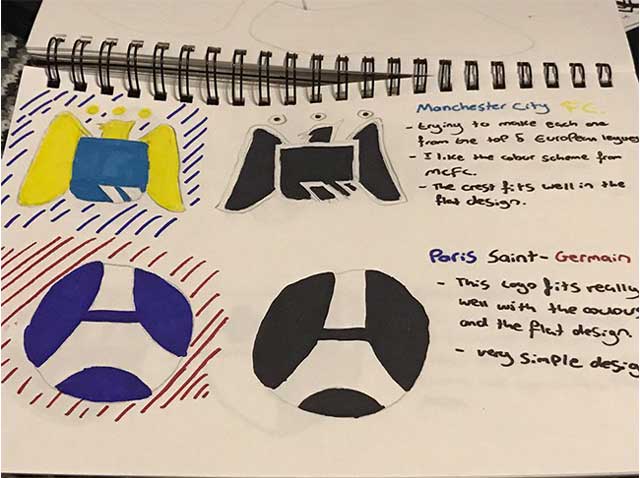 Manchester City F.C.
- trying to make each one
from the top 5 European leagues
- I like the colour scheme from
MCFC.
- The crest fits well in the
flat design.
Paris Saint-Germain
- This logo fits really
well with the colours
and the flat design
- very simple design